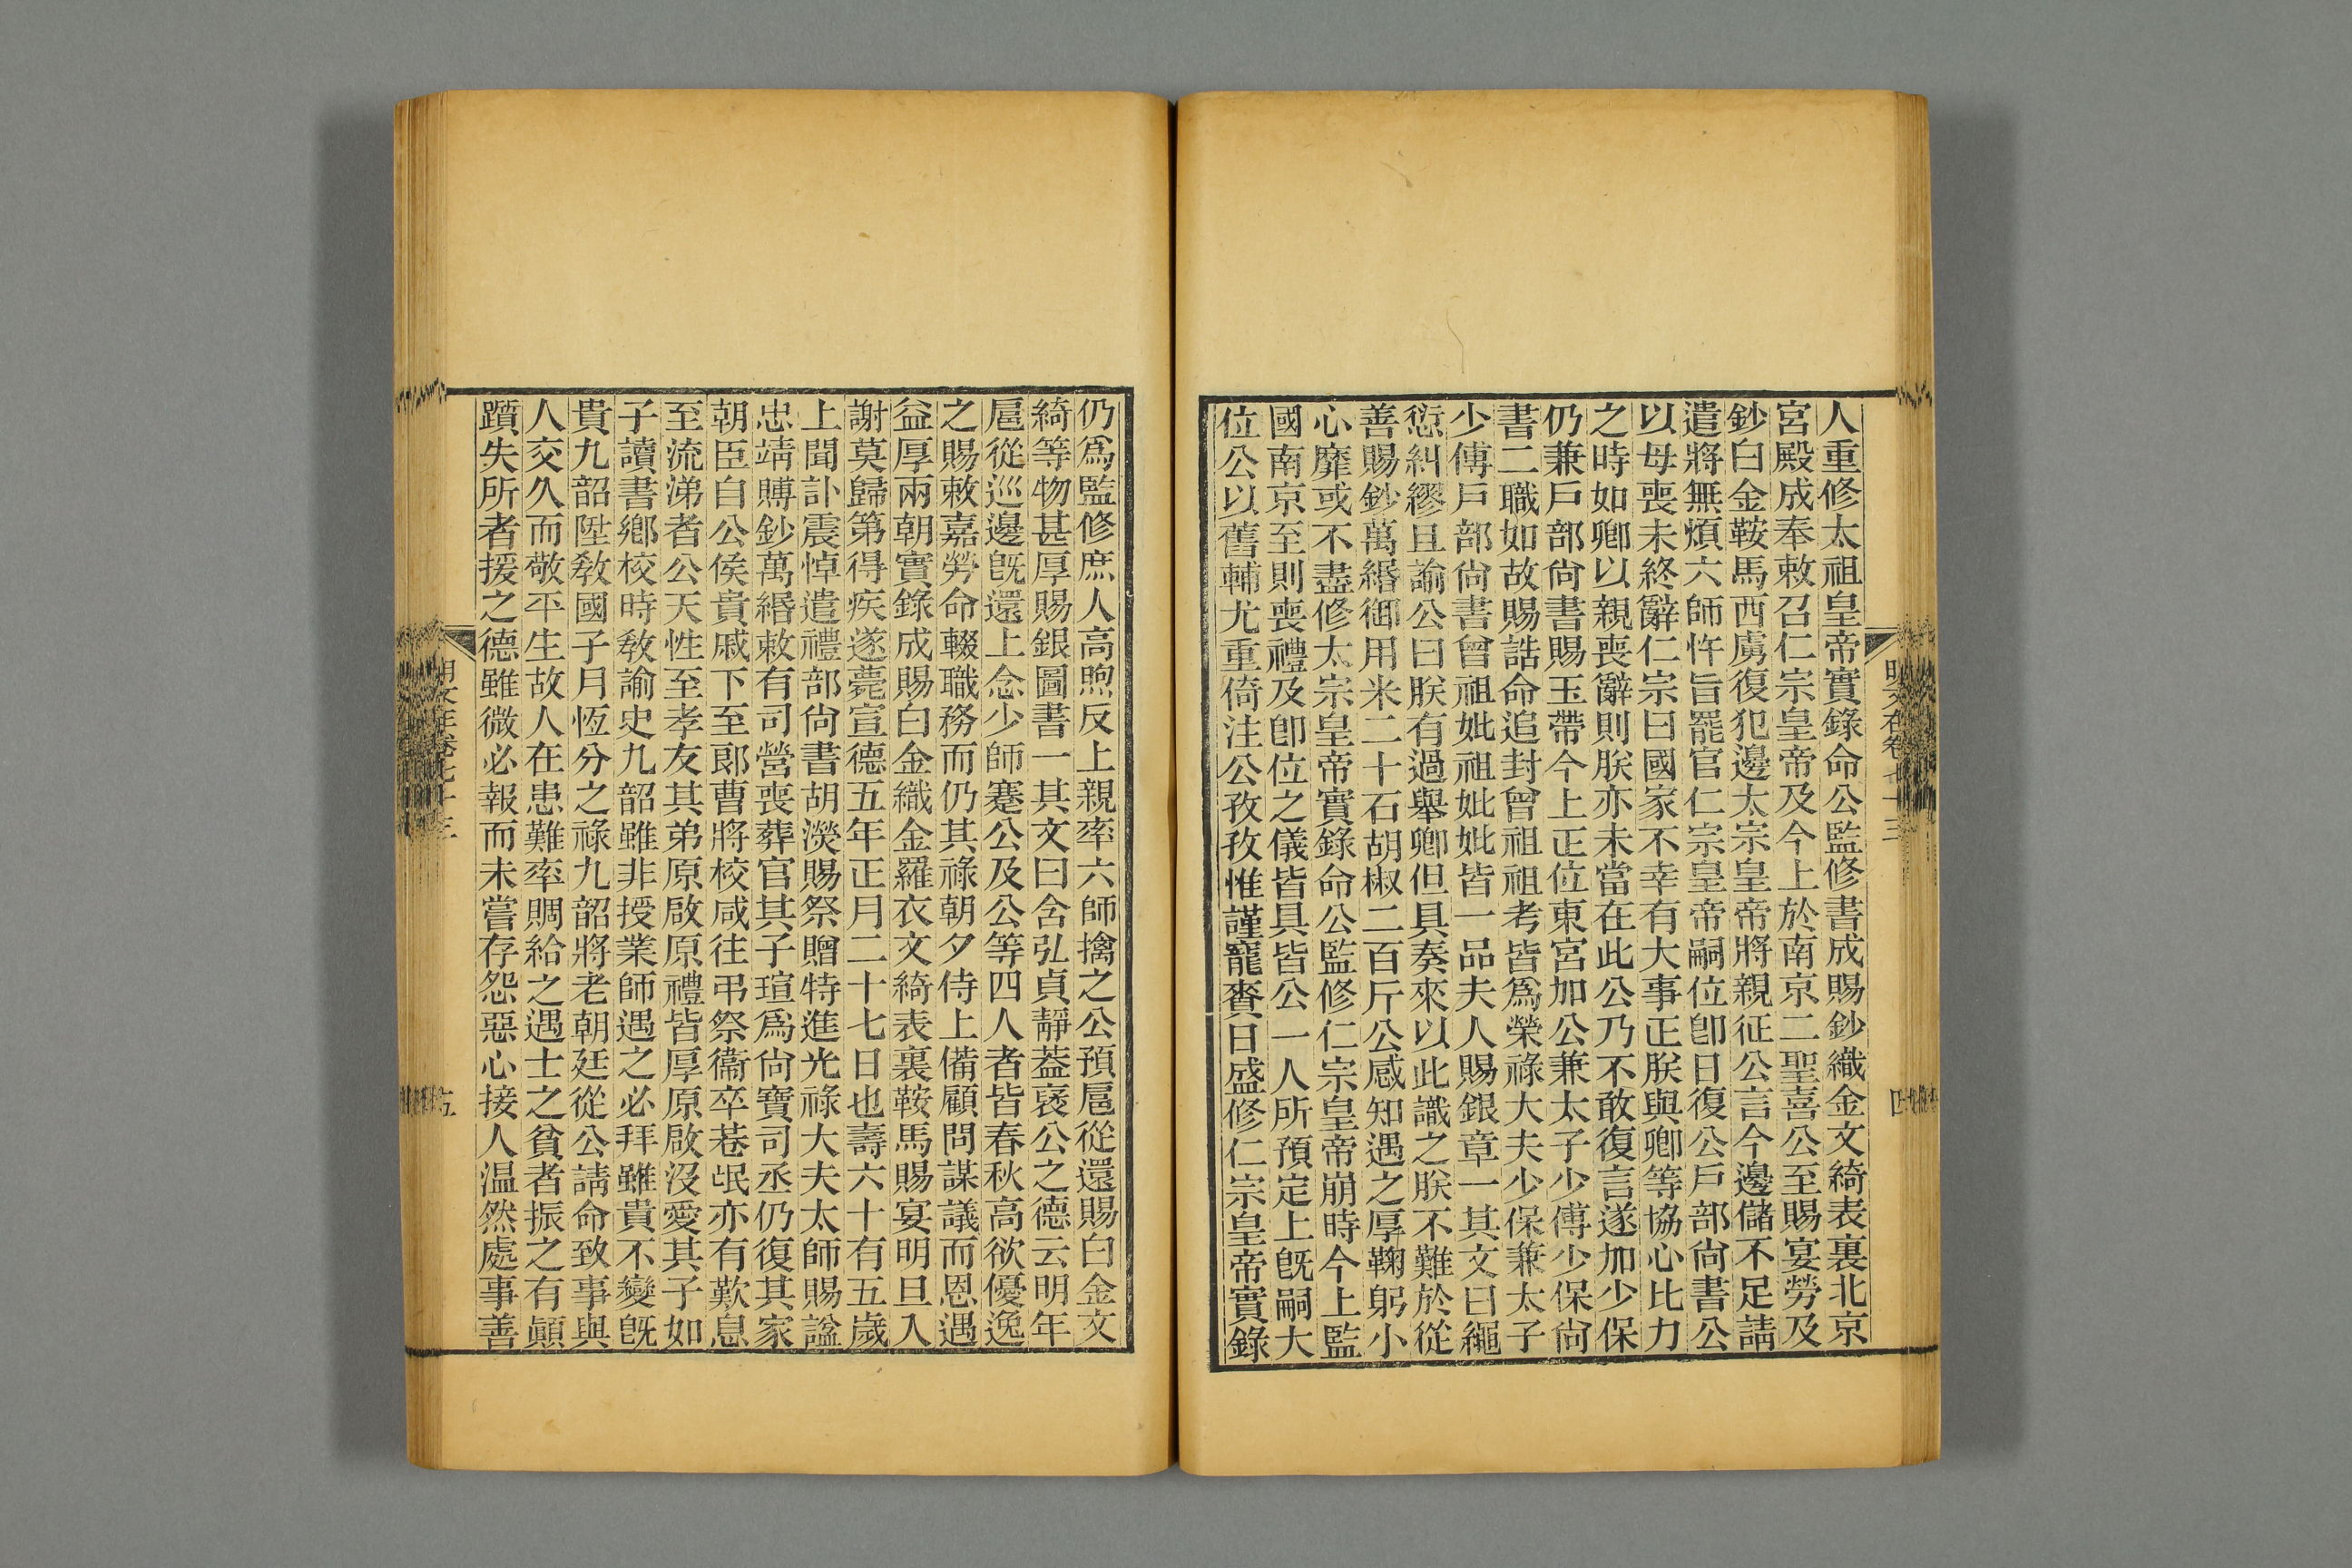 人重修太祖皇帝實錄命公監修書成賜鈔織金文綺表裏北京
宮殿成奉敕召仁宗皇帝及今上於南京二聖喜公至賜宴勞及
鈔白金鞍馬西虜復犯邊太宗皇帝將親征公言今邊儲不足請
遣將無煩六師忤旨罷官仁宗皇帝嗣位卽日復公戶部尙書公
以母喪未終辭仁宗曰國家不幸有大事正朕與卿等協心比力
之時如卿以親喪辭則朕亦未當在此公乃不敢復言遂加少保
仍兼戶部尙書賜玉帶今上正位東宮加公兼太子少傅少保尙
書二職如故賜誥命追封曾祖祖考皆爲榮祿大夫少保兼太子
少傅戶部尙書曾祖妣祖妣妣皆一品夫人賜銀章一其文曰繩
愆糾繆且諭公曰朕有過舉卿但具奏來以此識之朕不難於從
善賜鈔萬緡御用米二十石胡椒二百斤公感知遇之厚鞠躬小
心靡或不盡修太宗皇帝實錄命公監修仁宗皇帝崩時今上監
國南京至則喪禮及卽位之儀皆具皆公一人所預定上旣嗣大
位公以舊輔尤重倚注公孜孜惟謹寵賚日盛修仁宗皇帝實錄
明文在卷七十三
四
仍爲監修庶人高煦反上親率六師擒之公預扈從還賜白金文
綺等物甚厚賜銀圖書一其文曰含弘貞靜葢褒公之德云明年
扈從巡邊旣還上念少師蹇公及公等四人者皆春秋高欲優逸
之賜敕嘉勞命輟職務而仍其祿朝夕侍上備顧問謀議而恩遇
益厚兩朝實錄成賜白金織金羅衣文綺表裏鞍馬賜宴明旦入
謝莫歸第得疾遂薨宣德五年正月二十七日也壽六十有五歲
上聞訃震悼遣禮部尙書胡濙賜祭贈特進光祿大夫太師賜諡
忠靖賻鈔萬緡敕有司營喪葬官其子瑄爲尙寶司丞仍復其家
朝臣自公侯貴戚下至郞曹將校咸往弔祭衞卒巷氓亦有歎息
至流涕者公天性至孝友其弟原啟原禮皆厚原啟沒愛其子如
子讀書鄉校時敎諭史九韶雖非授業師遇之必拜雖貴不變旣
貴九韶陞敎國子月恆分之祿九韶將老朝廷從公請命致事與
人交久而敬平生故人在患難率賙給之遇士之貧者振之有顚
躓失所者援之德雖微必報而未嘗存怨惡心接人温然處事善
明文在卷七十三
五